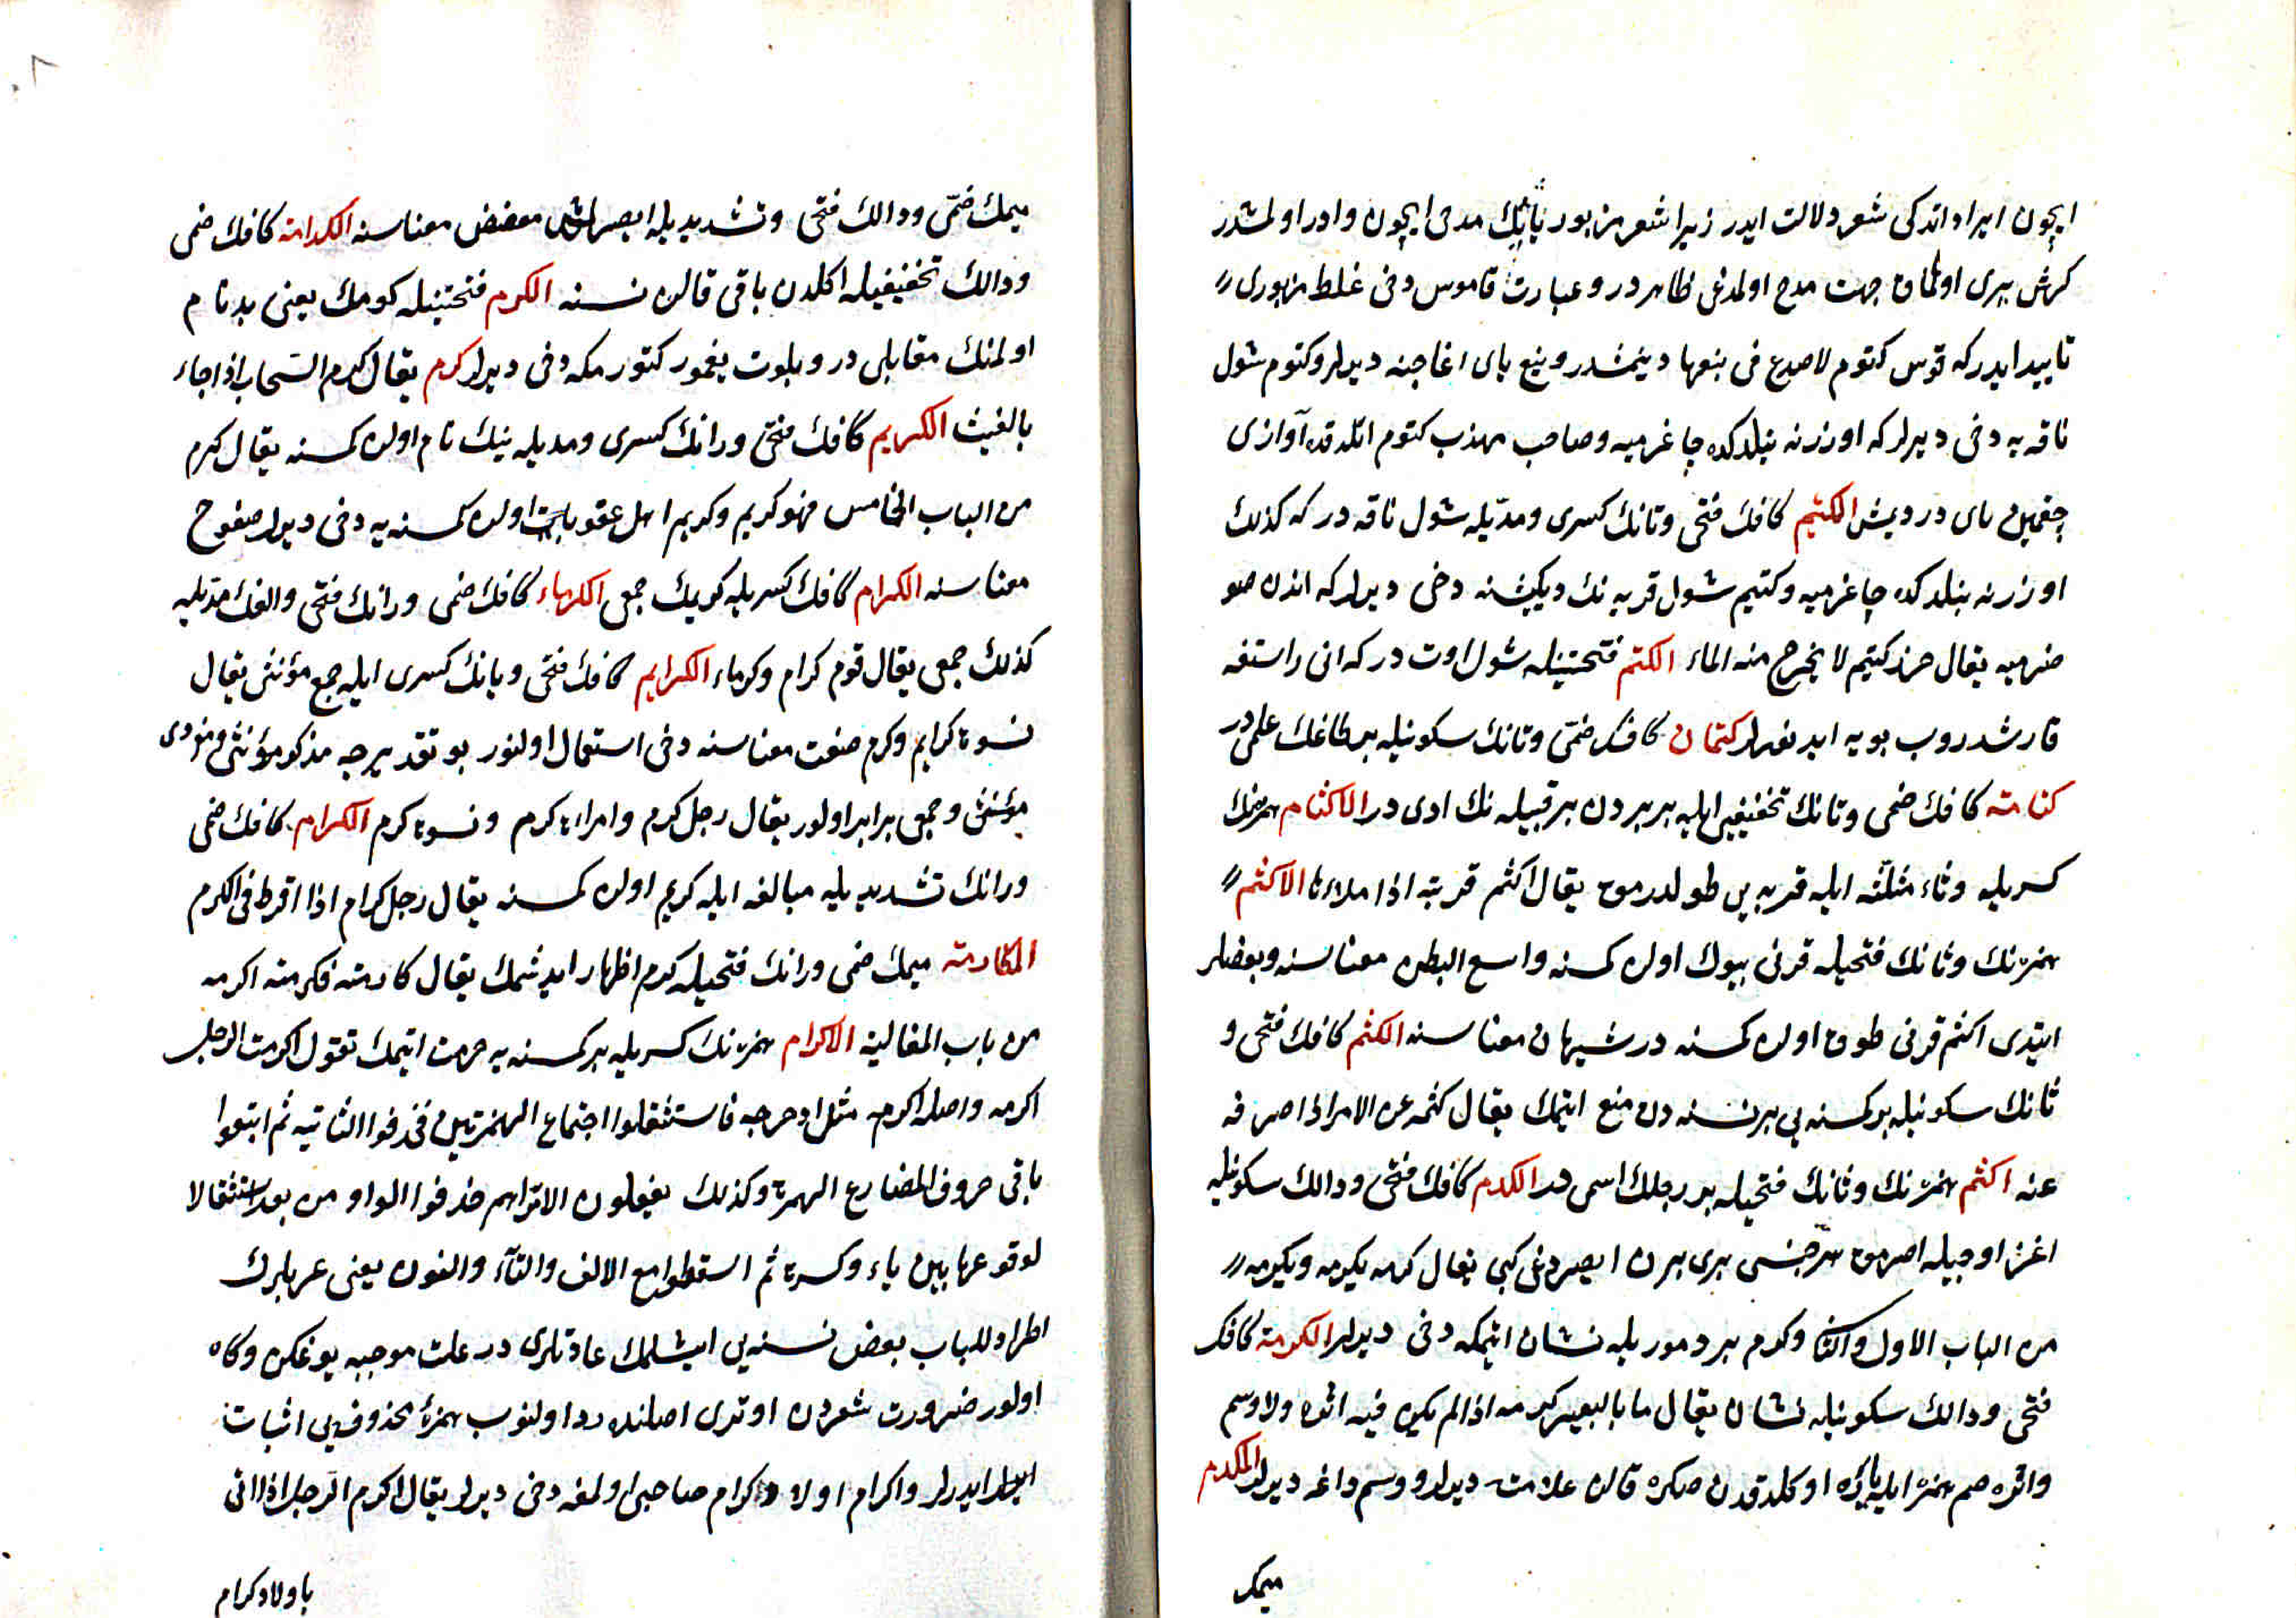 ایچون ایراد اتدکی شعر دلالت ایدر زیرا شعر مزبور یایك مدحی ایچون وادر اولمشدر
کرش یری اولمامق جهت مدح اولمدغی ظاهر در و عبارت قاموس دخی غلط مزبوری
تایید ایدر که قوس کتوم لا صدع فی نبعها دینمشدر و نبع یای اغاجنه دیرلر و کتوم شول
ناقه یه دخی دیرلر که اوزرنه بنلدکده چاغرمیه و صاحب مهذب کتوم اتلدقده آوازی
چقمین یای در دیمش الکتیم کافك فتحی و تانك کسری و مدیله شول ناقه در که کذلك
اوزرنه بنلدکده چاغرمیه و کتیم شول قربه نك دیکیشنه دخی دیرلر که اندن صو
صزمیه یقال خرز کتیم لا یخرج منه الماء الکتم فتحتینله شول اوت در که انی راستغه
قارشدروب بویه ایدنورلر کتمان کافك ضمی و تانك سکونیله بر طاغك علمی در
کتامة کافك ضمی و تانك تخفیفی ایله بربردن بر قبیله نك ادی در الاکثام همزه نك
کسریله و ثاء مثلثه ایله قربه یی طولدرمق یقال اکثم قربته اذا ملاءها الاکثم
همزه نك و ثانك فتحیله قرنی بیوك اولان کمسنه واسع البطن معناسنه و بعضلر
ایتدی اکثم قرنی طوق اولان کمسنه در شبعان معناسنه الکثم کافك فتحی و
ثانك سکونیله بر کمسنه یی بر نسنه دن منع ایتمك یقال کثمه عن الامر اذا صرفه
عنه اکثم همزه نك و ثانك فتحیله بر رجلك اسمی در الکدم کافك فتحی و دالك سکونیله
اغز اوجیله اصرمق هر جنسی بری برن ایصردغی کبی یقال کدمه یکدمه و یکدمه
من الباب الاول والثانی و کدم بر دمور یله نشان ایتمکه دخی دیرلر الکدمة کافك
فتحی و دالك سکونیله نشان یقال ما بالبعیر کدمة اذا لم یکن فیه اثره ولا وسم
واثره ضم همزه ایله یاره اوکلدقدن صکره قالان علامت دیرلر و وسم داغه دیرلر المکدم
میمك
میمك ضمی و دالك فتحی و تشدیدیله ایصرلمش معضض معناسنه الکدامة کافك ضمی
و دالك تخفیفیله اکلدن باقی قالان نسنه الکرم فتحتینله کومك یعنی بدنام
اولمنك مقابلی در و بلوت یغمور کتورمکه دخی دیرلر کرم یقال کرم السحاب اذا جاء
بالغیث الکریم کافك فتحی و رانك کسری و مدیله نیك نام اولان کمسنه یقال کرم
من الباب الخامس فهو کریم و کریم اهل عقوباتی اولان کمسنه یه دخی دیرلر صفوح
معناسنه الکرام کافك کسریله کریمك جمعی الکرماء کافك ضمی و رانك فتحی و الفك مدیله
کذلك جمعی یقال قوم کرام و کرماء الکرایم کافك فتحی و یانك کسری ایله جمع مؤنثی یقال
نسوة کرایم و کرم صفت معناسنه دخی استعمال اولنور بو تقدیرجه مذکر مؤنثی و مفردی
مؤنثی و جمعی برابر اولور یقال رجل کرم و امراة کرم و نسوة کرم الکرام کافك ضمی
و رانك تشدیدیله مبالغه ایله کریم اولان کمسنه یقال رجل کرام اذا افرط فی الکرم
المکارمة میمك ضمی و رانك فتحیله کرم اظهار ایدشمك یقال کارمته فکرمته اکرمه
من باب المغالبة الاکرام همزه نك کسریله بر کمسنه یه حرمت ایتمك تقول اکرمت الرجل
اکرمه واصله اکرمه مثل ادحرجه فاستثقلوا اجتماع الهمزتین فحذفوا الثانیة ثم اتبعوا
باقی حروف المضارع الهمزة و کذلك یفعلون الا تراهم حذفوا الواو من یعد استثقالا
لوقوعها بین یاء و کسرة ثم اسقطوا مع الالف والتآء والنون یعنی عربلرك
اطرادا للباب بعض نسنه یی ایشلمك عادتلری در علت موجبه یوغکن و کاه
اولور ضرورت شعردن اوتری اصلنه رد اولنوب همزۀ محذوفه یی اثبات
ایدرلر و اکرام اولاد کرام صاحبی اولمغه دخی دیرلر یقال اکرم الرجل اذا اتی
باولاد کرام